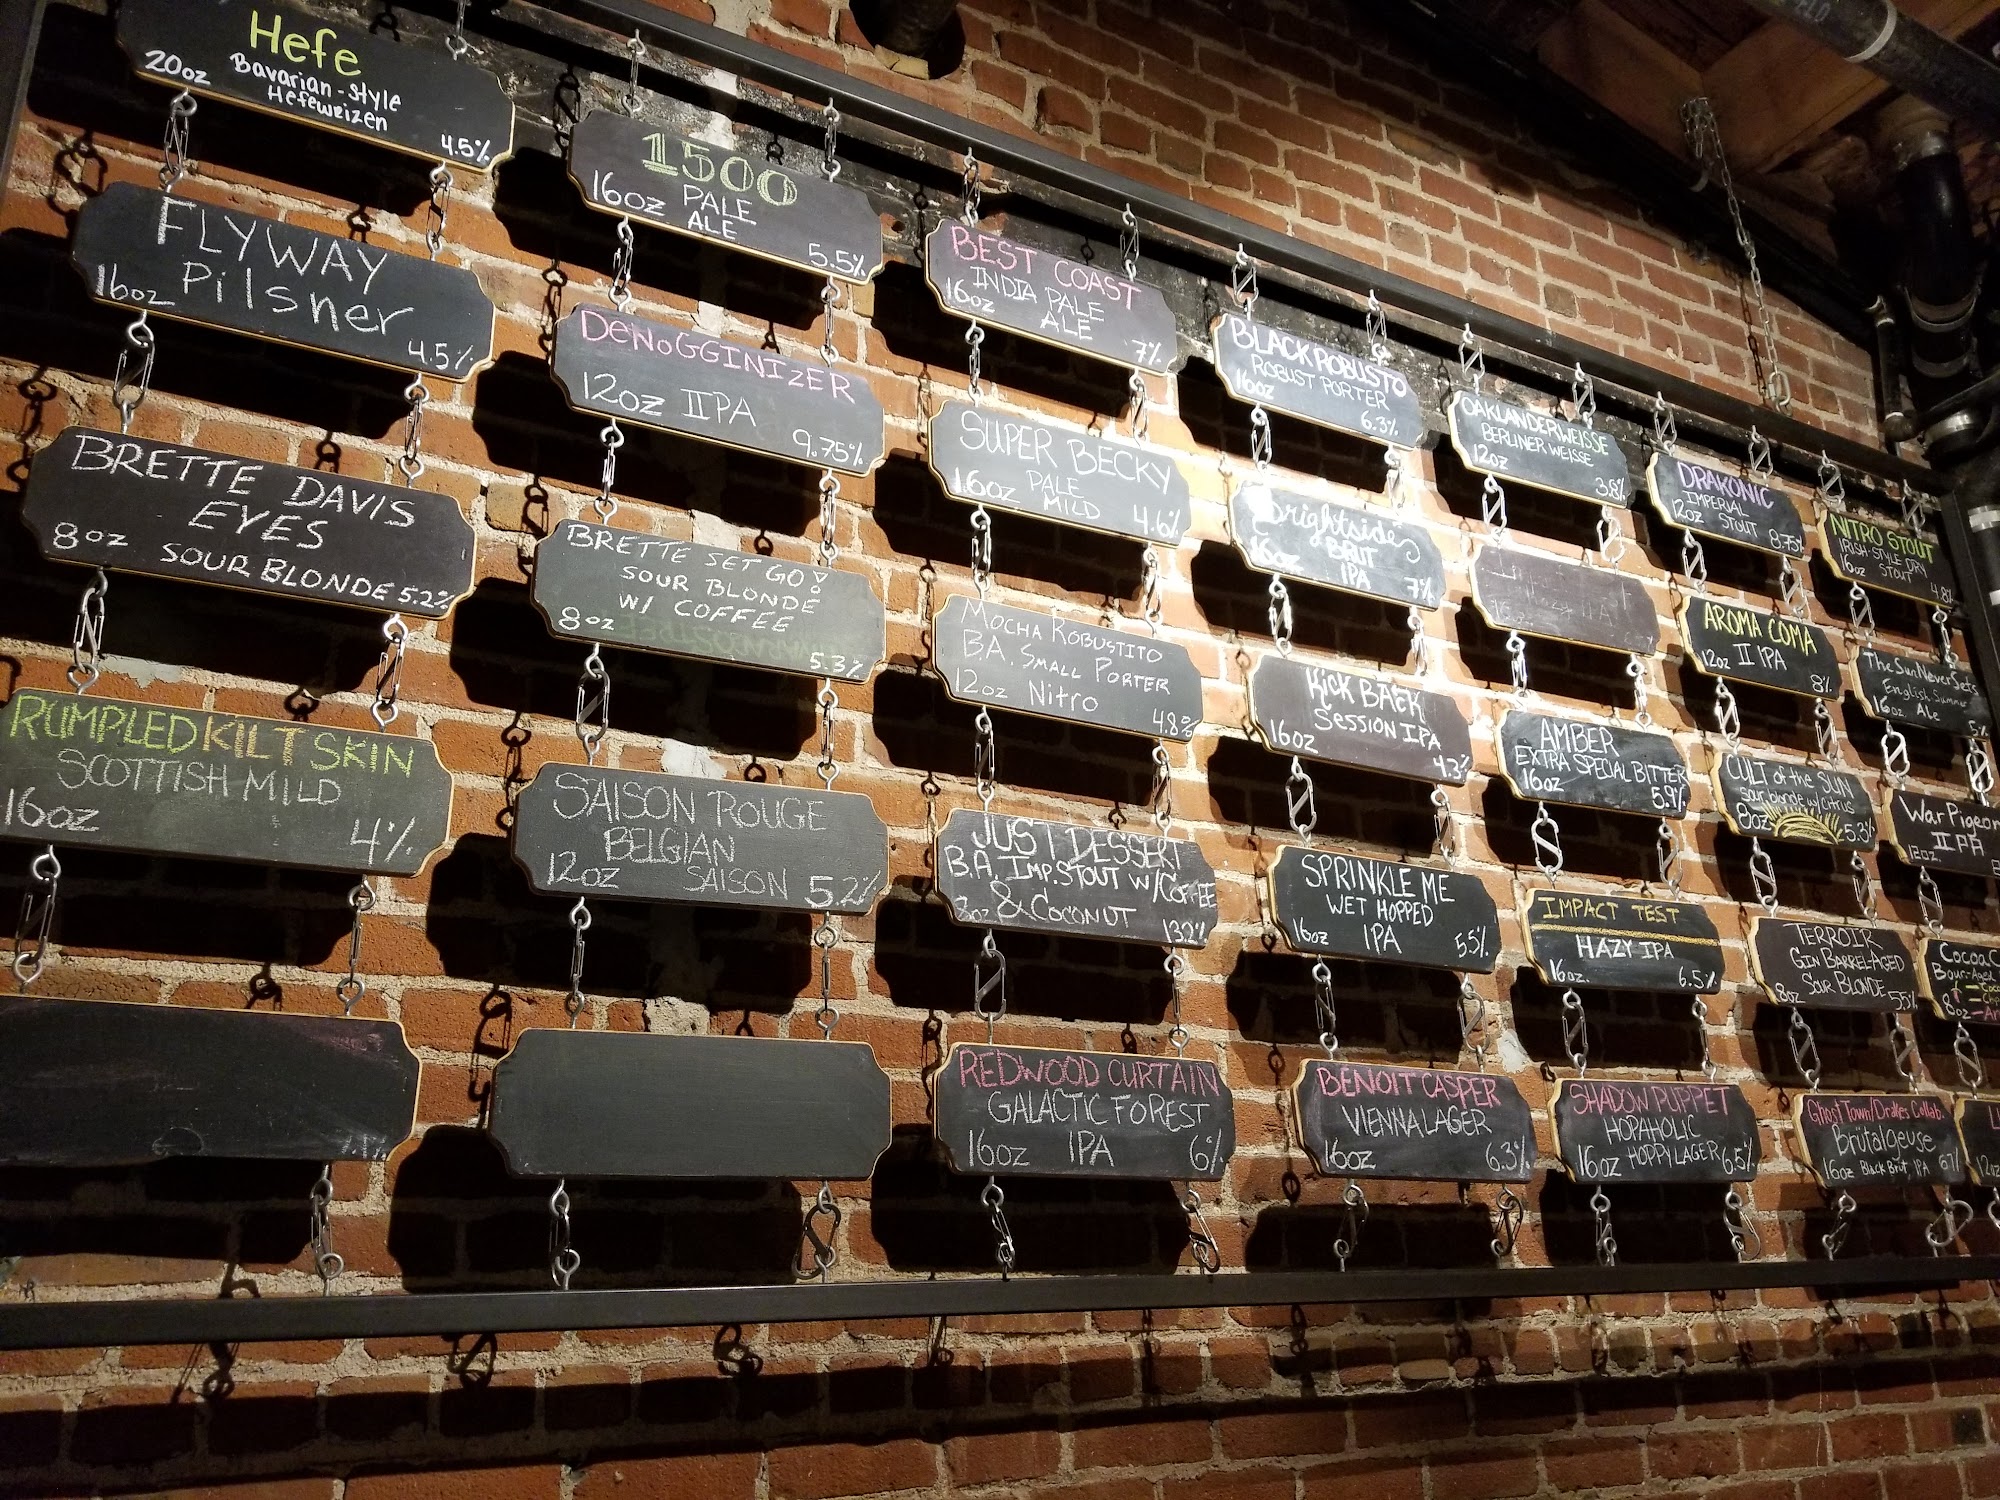 Hefe
20oz Bavarian-Style
Hefeweizen
4.5%
FLYWAY
16oz Pilsner
4.5%
BRETTE DAVIS
EYES
8oz SOUR BLONDE 5.2%
RUMPLED KILT SKIN
SCOTTISH MILD
16oz 4%
1500
16oz PALE
ALE
5.5%
DENOGGINIZER
12oz IIPA
9.75%
BRETTE SET GO!
SOUR BLONDE
8oz W/ COFFEE
5.3%
SAISON ROUGE
BELGIAN
12oz SAISON 5.2%
BEST COAST
16oz INDIA PALE
ALE
7%
SUPER BECKY
16oz PALE
MILD 4.6%
MOCHA ROBUSTITO
B.A. SMALL PORTER
12oz Nitro 4.8%
JUST DESSERT
B.A. IMP. STOUT W/COFFEE
8oz & COCONUT 13.2%
REDWOOD CURTAIN
GALACTIC FOREST
16oz IPA 6%
BLACK ROBUSTO
ROBUST PORTER
16oz 6.3%
Brightside
16oz BRUT
IPA 7%
KICK BACK
SESSION IPA
16oz 4.3%
SPRINKLE ME
WET HOPPED
16oz IPA 5.5%
BENOIT CASPER
VIENNA LAGER
16oz 6.3%
OAKLANDERWEISSE
BERLINER WEISSE
12oz 3.8%
AMBER
EXTRA SPECIAL BITTER
16oz 5.9%
IMPACT TEST
HAZY IPA
16oz. 6.5%
SHADOW PUPPET
HOPAHOLIC
16oz HOPPY LAGER 6.5%
DRAKONIC
IMPERIAL
12oz STOUT 8.75%
AROMA COMA
12oz II IPA 8%
CULT of the SUN
sour blonde w/ citrus
8oz 5.3%
TERROIR
GIN BARREL-AGED
8oz SOUR BLONDE 5.5%
Ghost Town/Drakes Collab.
Brutalgeuse
16oz Black Brut IPA 6.7%
NITRO STOUT
IRISH-STYLE DRY
16oz STOUT 4.8%
The Sun Never Sets
English Summer
16oz. Ale 5%
War Pigeon
II PA
12oz.
8oz
12oz